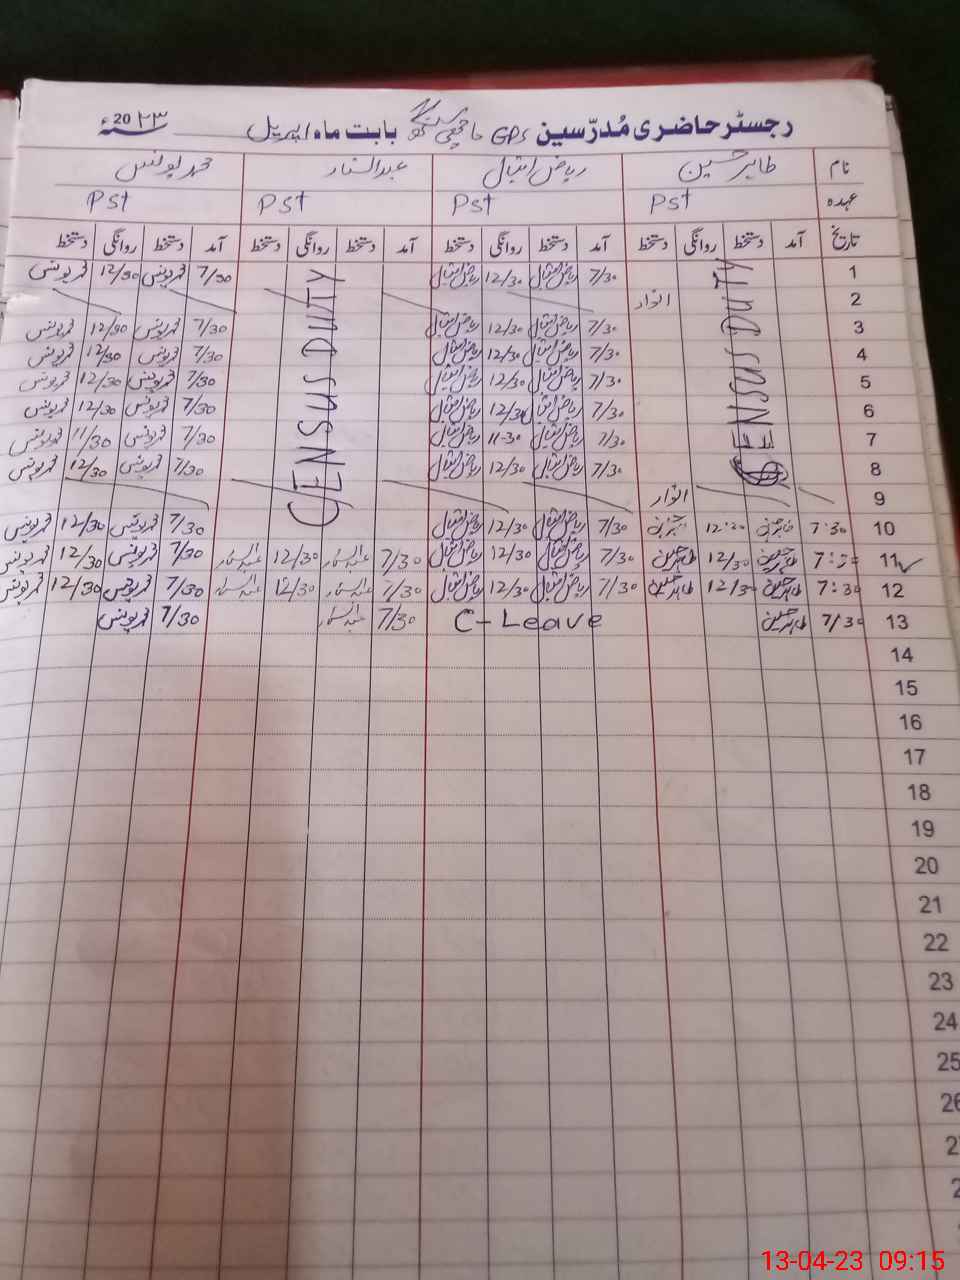 رجسٹر حاضری مُدرّسین GPS بابت ماہ اپریل 20۲۳ سنہء
نام طاہر حسین ریاض اقبال عبدالستار محمد یونس
عہدہ Pst Pst Pst Pst
تاریخ آمد دستخط روانگی دستخط آمد دستخط روانگی دستخط آمد دستخط روانگی دستخط آمد دستخط روانگی دستخط
CENSUS DUTY
CENSUS DUTY
1 7/30 ریاض اقبال 12/30 ریاض اقبال 7/30 محمد یونس 12/30 محمد یونس
2 اتوار
3 7/30 ریاض اقبال 12/30 ریاض اقبال 7/30 محمد یونس 12/30 محمد یونس
4 7/30 ریاض اقبال 12/30 ریاض اقبال 7/30 محمد یونس 12/30 محمد یونس
5 7/30 ریاض اقبال 12/30 ریاض اقبال 7/30 محمد یونس 12/30 محمد یونس
6 7/30 ریاض اقبال 12/30 ریاض اقبال 7/30 محمد یونس 12/30 محمد یونس
7 7/30 ریاض اقبال 11-30 ریاض اقبال 7/30 محمد یونس 11/30 محمد یونس
8 7/30 ریاض اقبال 12/30 ریاض اقبال 7/30 محمد یونس 12/30 محمد یونس
9 اتوار
10 7:30 طاہر حسین طاہر حسین 7/30 ریاض اقبال 12/30 ریاض اقبال 7/30 محمد یونس 12/30 محمد یونس
11 7:30 طاہر حسین 12/30 طاہر حسین 7/30 ریاض اقبال 12/30 ریاض اقبال 7/30 عبدالستار 12/30 عبدالستار 7/30 محمد یونس 12/30 محمد یونس
12 7:30 طاہر حسین 12/30 طاہر حسین 7/30 ریاض اقبال 12/30 ریاض اقبال 7/30 عبدالستار 12/30 عبدالستار 7/30 محمد یونس 12/30 محمد یونس
13 7/30 طاہر حسین C-Leave 7/30 عبدالستار 7/30 محمد یونس
14
15
16
17
18
19
20
21
22
23
24
25
26
13-04-23 09:15